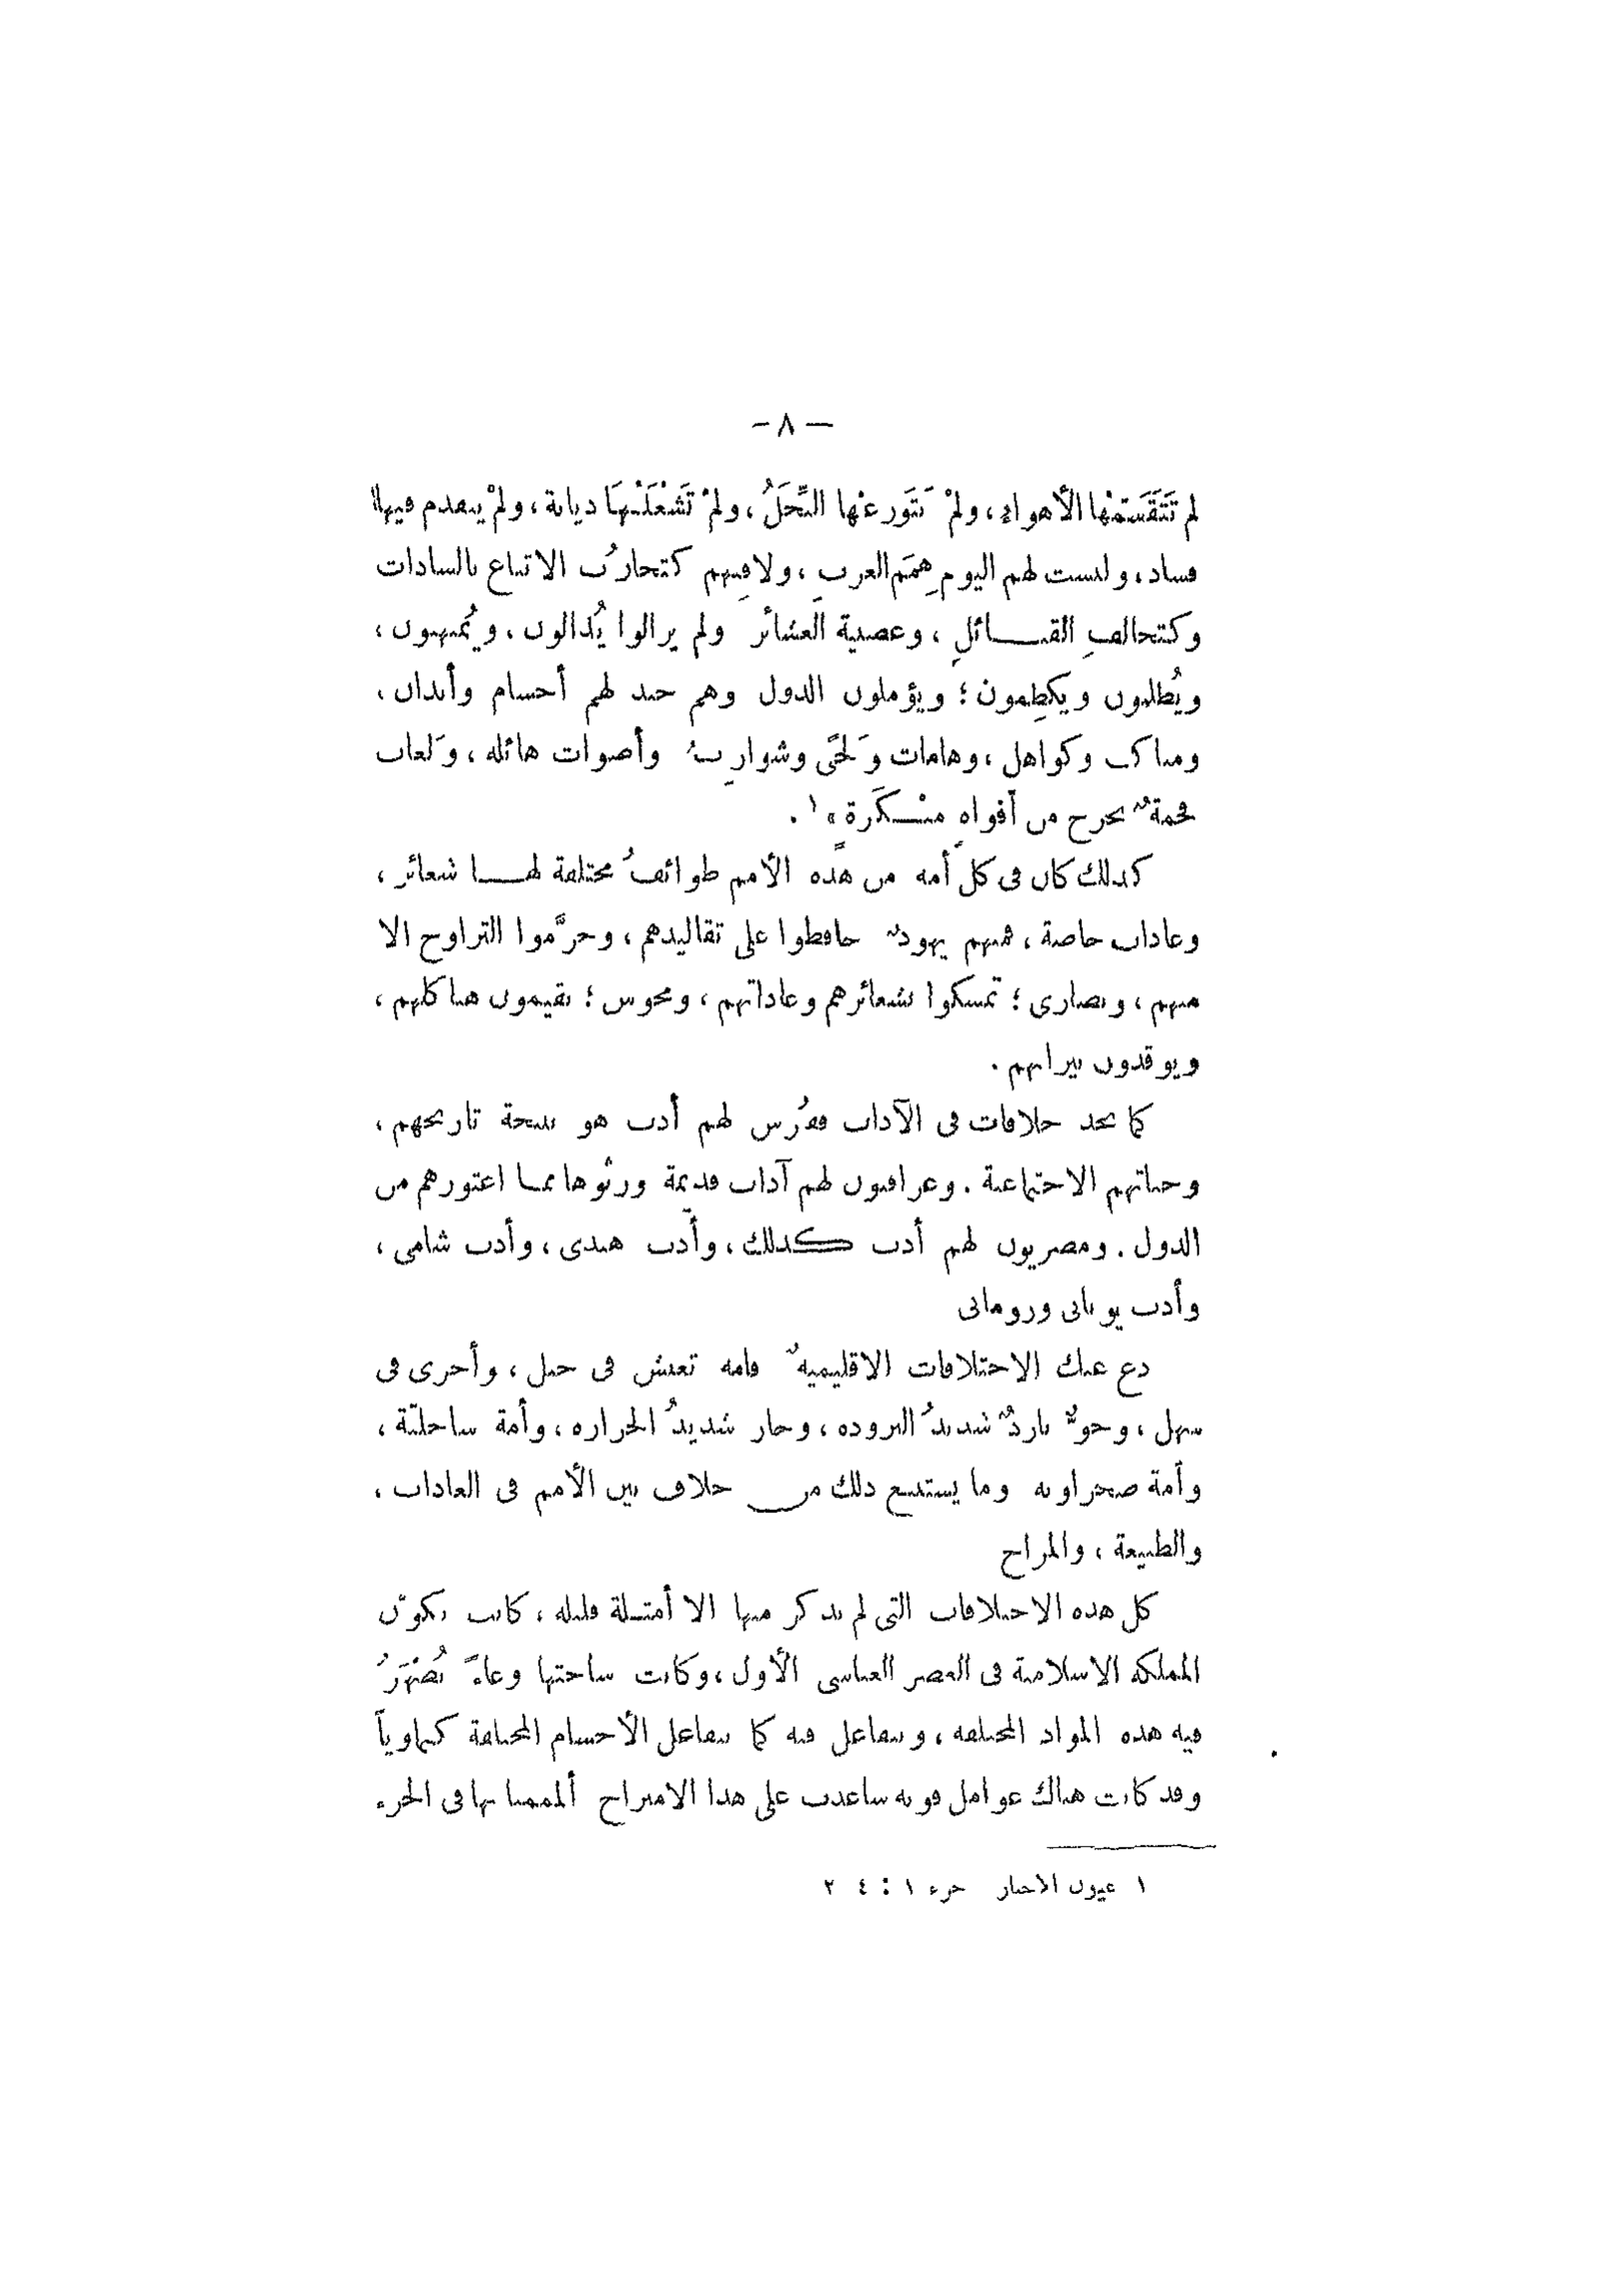 — ٨ —
لم تَتَقَسَّمْها الأهواء، ولمْ تَتَوَزعْها النِّحَلُ، ولمْ تَشْغَلْهَا ديانة، ولمْ يتقدم فيها
فساد، وليست لهم اليوم هِمَم العربِ، ولا فيهم كتحارُب الاتباع بالسادات
وكتحالفِ القبائلِ، وعصبية العشائر ولم يزالوا يُذالون، ويُمتهنون،
ويُظلمون ويكظِمون؛ ويؤملون الدول وهم جند لهم أجسام وأبدان،
ومناكب وكواهل، وهامات ولحًى وشواربُ وأصوات هائلة، ولغات
فخمةٌ تخرج من أفواهٍ منْكَرَةٍ»١.
كذلك كان فى كل أمة من هذه الأمم طوائفُ مختلفة لها شعائر،
وعادات خاصة، فمنهم يهودٌ حافظوا على تقاليدهم، وحرَّموا التزاوج الا
منهم، ونصارى؛ تمسكوا بشعائرهم وعاداتهم، ومجوس؛ يقيمون هياكلهم،
ويوقدون نيرانهم.
كما نجد خلافات فى الآداب ففُرس لهم أدب هو نتيجة تاريخهم،
وحياتهم الاجتماعية. وعراقيون لهم آداب قديمة ورثوها مما اعتورهم من
الدول. ومصريون لهم أدب كذلك، وأدب هندى، وأدب شامى،
وأدب يونانى ورومانى
دع عنك الاختلافات الاقليمية فامة تعيش فى جبل، وأخرى فى
سهل، وجوٌّ باردٌ شديدُ البرودة، وحار شديدُ الحرارة، وأمة ساحليّة،
وأمة صحراوية وما يستتبع ذلك من خلاف بين الأمم فى العادات،
والطبيعة، والمزاج
كل هذه الاختلافات التى لم نذكر منها الا أمثلة قليلة، كانت تكوّن
المملكة الاسلامية فى العصر العباسى الأول، وكانت ساحتها وعاءً تُصْهَرُ
فيه هذه المواد المختلفة، وتتفاعل فيه كما تتفاعل الأجسام المختلفة كيماوياً
وقد كانت هناك عوامل قوية ساعدت على هذا الامتزاج ألممنا بها فى الجزء
١ عيون الاخبار جزء ١ : ٤ ٢